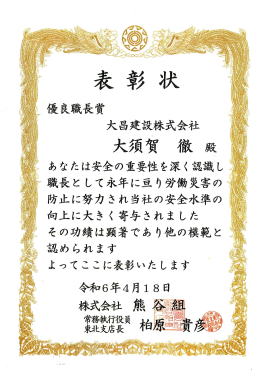 表彰状
優良職長賞
大昌建設株式会社
大須賀 徹 殿
あなたは安全の重要性を深く認識し
職長として永年に亘り労働災害の
防止に努力され当社の安全水準の
向上に大きく寄与されました
その功績は顕著であり他の模範と
認められます
よってここに表彰いたします
令和6年4月18日
株式会社 熊谷組
常務執行役員
東北支店長 柏原 貴彦